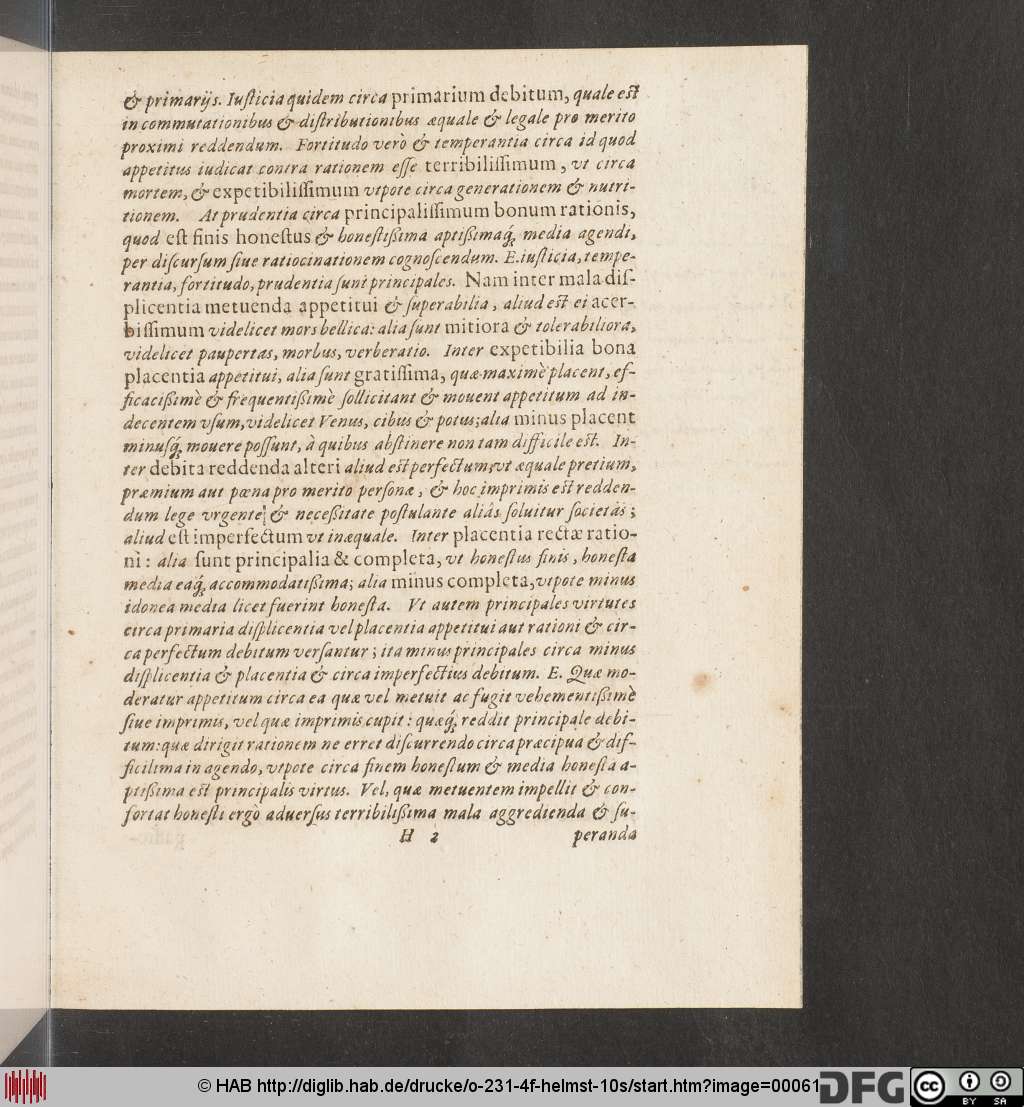 & primarijs. Iusticia quidem circa primarium debitum, quale est
in commutationibus & distributionibus æquale & legale pro merito
proximi reddendum. Fortitudo verò & temperantia circa id quod
appetitus iudicat contra rationem esse terribilissimum, vt circa
mortem, & expetibilissimum vtpote circa generationem & nutri-
tionem. At prudentia circa principalissimum bonum rationis,
quod est finis honestus & honestißima aptißimaq́; media agendi,
per discursum siue ratiocinationem cognoscendum. E. iusticia, tempe-
rantia, fortitudo, prudentia sunt principales. Nam inter mala dis-
plicentia metuenda appetitui & superabilia, aliud est ei acer-
bissimum videlicet mors bellica: alia sunt mitiora & tolerabiliora,
videlicet paupertas, morbus, verberatio. Inter expetibilia bona
placentia appetitui, alia sunt gratissima, quæ maximè placent, ef-
ficacißimè & frequentißimè sollicitant & mouent appetitum ad in-
decentem vsum, videlicet Venus, cibus & potus; alia minus placent
minusq́; mouere possunt, à quibus abstinere non tam difficile est. In-
ter debita reddenda alteri aliud est perfectum, vt æquale pretium,
præmium aut pœna pro merito personæ, & hoc imprimis est redden-
dum lege vrgente & neceßitate postulante aliâs soluitur societas;
aliud est imperfectum vt inæquale. Inter placentia rectæ ratio-
ni: alia sunt principalia & completa, vt honestus finis, honesta
media eaq́; accommodatißima; alia minus completa, vtpote minus
idonea media licet fuerint honesta. Vt autem principales virtutes
circa primaria displicentia vel placentia appetitui aut rationi & cir-
ca perfectum debitum versantur; ita minus principales circa minus
displicentia & placentia & circa imperfectius debitum. E. Quæ mo-
deratur appetitum circa ea quæ vel metuit ac fugit vehementißimè
siue imprimis, vel quæ imprimis cupit: quæq́; reddit principale debi-
tum: quæ dirigit rationem ne erret discurrendo circa præcipua & dif-
ficilima in agendo, vtpote circa finem honestum & media honesta a-
ptißima est principalis virtus. Vel, quæ metuentem impellit & con-
fortat honesti ergò aduersus terribilißima mala aggredienda & su-
H 2 peranda
© HAB http://diglib.hab.de/drucke/o-231-4f-helmst-10s/start.htm?image=00061
DFG
cc BY SA